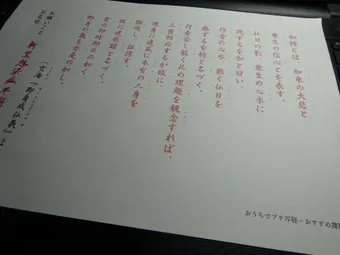 加持とは 如来の大悲と
衆生の信心とを表す。
仏日の影 衆生の心水に
現ずるを加と曰い、
行者の心水 能く仏日を
感ずるを持と名づく。
行者若し能く此の理趣を観念すれば、
三密相応するが故に、
現身に速疾に本有の三身を
顕現し、証得す。
故に速疾顕と名づく。
常の即時即日の如く、
即身の義も亦是の如し。
(空海『即身成仏義』より
お願いごと
お名前
おうちでプチ写経・おすすめ